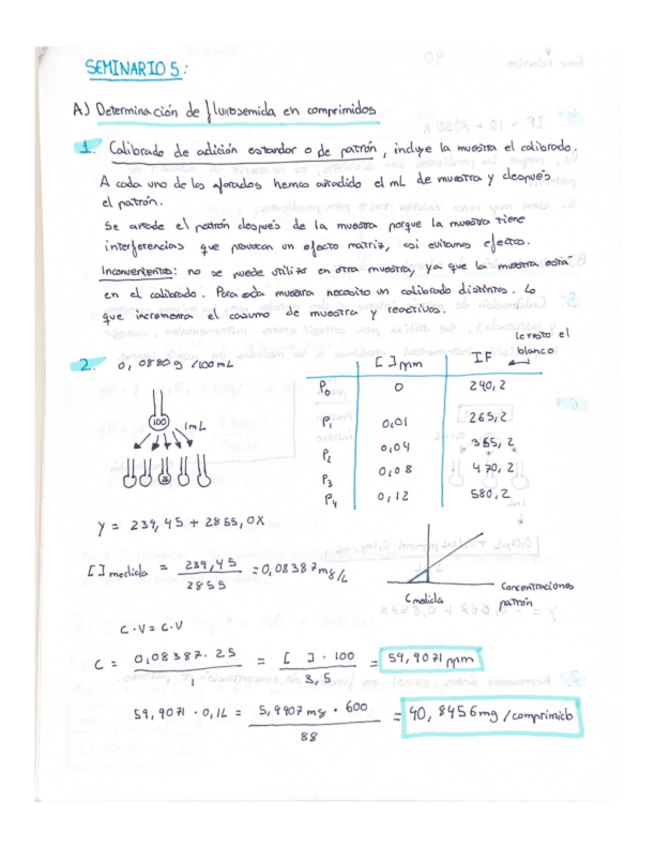 SEMINARIO 5:
A) Determinación de flurosemida en comprimidos
1. Calibrado de adición estandar o de patrón, indye la muestra el calibrado.
A cada uno de los aforados hemos añadido el mL de muestra y después
el patrón.
Se añade el patrón después de la muestra porque la muestra tiene
interferencias que provocan un efecto matriz, así evitamos efectos.
Inconvenientes: no se puede utilizar en otra muestra, ya que la muestra está
en el calibrado. Para cada muestra necesito un calibrado distinto. Lo
que incrementa el consumo de muestra y reactivos.
le resto el
blanco
2. 0,0880g /100mL
[ ] ppm IF
P0 0 240,2
P1 0,01 265,2
P2 0,04 365,2
P3 0,08 470,2
P4 0,12 580,2
100
1mL
25
Y = 239,45 + 2855,0X
[ ] medida = 239,45 / 2855 = 0,08387mg/L
Cmedida
Concentraciones
patrón
C·V = C·V
C = 0,08387·25 / 1 = [ ]·100 / 3,5 = 59,9071 ppm
59,9071 · 0,1L = 5,9907mg · 600 / 88 = 40,8456mg/comprimido